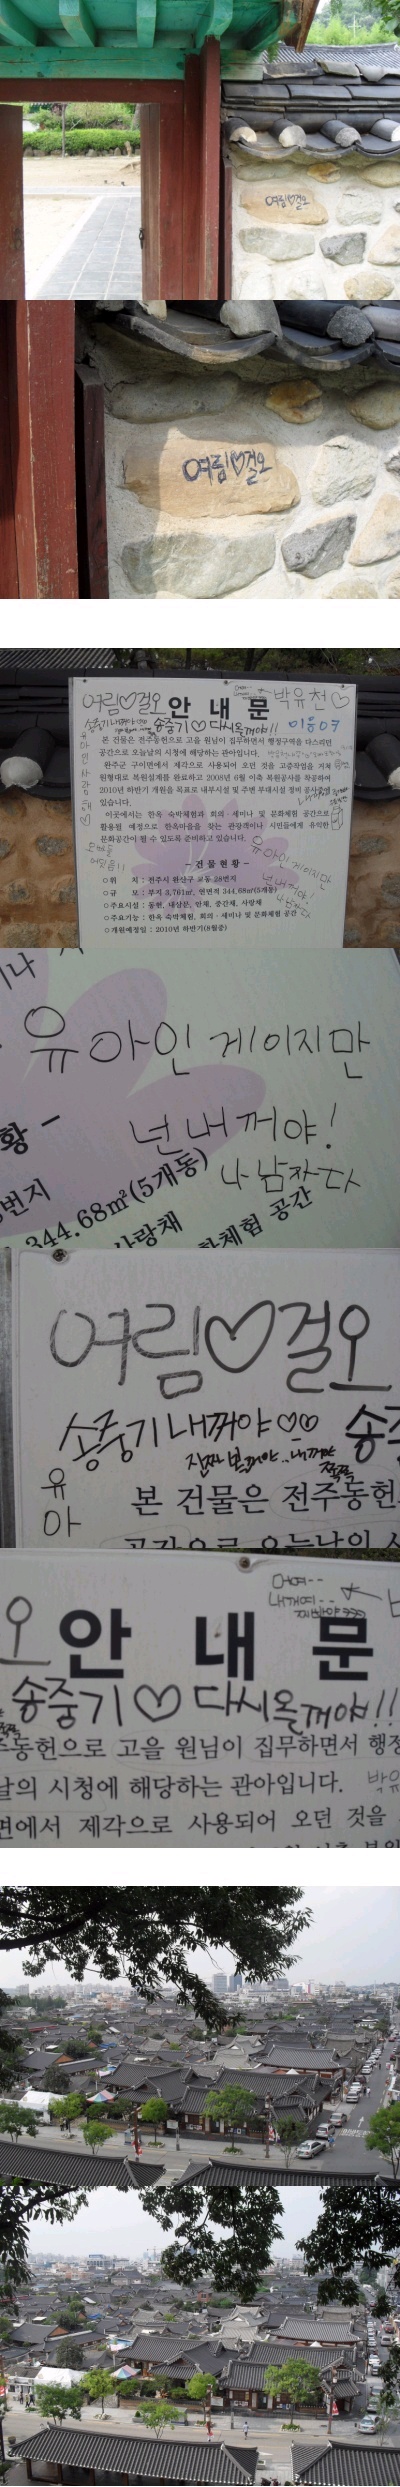 여림♡걸오
여림♡걸오
여림♡걸오
박유천♡
안 내 문
송중기♡다시올꺼야!!
본 건물은 전주동헌으로 고을 원님이 집무하면서 행정구역을 다스리던
공간으로 오늘날의 시청에 해당하는 관아입니다.
완주군 구이면에서 제각으로 사용되어 오던 것을 고증작업을 거쳐
원형대로 복원설계를 완료하고 2008년 6월 이축 복원공사를 착공하여
2010년 하반기 개원을 목표로 내부시설 및 주변 부대시설 정비 공사중에
있습니다.
이곳에서는 한옥 숙박체험과 회의·세미나 및 문화체험 공간으로
활용될 예정으로 한옥마을을 찾는 관광객이나 시민들에게 유익한
문화공간이 될 수 있도록 준비하고 있습니다.
유아인사랑해♡
유아인게이지만
넌내꺼야!
나남자다
- 건물현황 -
○위 치 : 전주시 완산구 교동 28번지
○규 모 : 부지 3,761㎡, 연면적 344.68㎡(5개동)
○주요시설 : 동헌, 내삼문, 안채, 중간채, 사랑채
○주요기능 : 한옥 숙박체험, 회의·세미나 및 문화체험 공간
○개원예정일 : 2010년 하반기(8월중)
유아인 게이지만
넌내꺼야!
나남자다
황 -
번지
344.68㎡(5개동)
사랑채
화체험 공간
여림♡걸오
송중기내꺼야♡♡
송중
유
아
본 건물은 전주동헌
공간으로 오늘날의 시
오
안 내 문
송중기♡다시올꺼야!!
주동헌으로 고을 원님이 집무하면서 행정
날의 시청에 해당하는 관아입니다.
박유
면에서 제각으로 사용되어 오던 것을